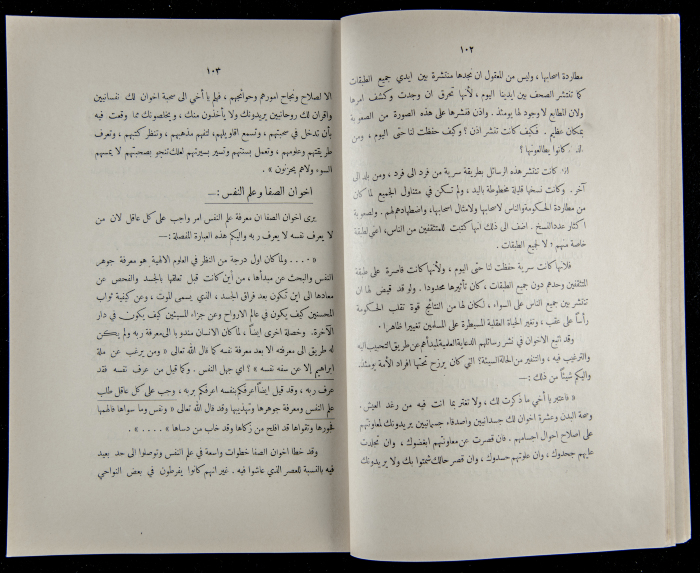 ١٠٢
مطاردة اصحابها ، وليس من المعقول ان نجدها منتشرة بين ايدي جميع الطبقات
كما تنتشر الصحف بين ايدينا اليوم ، لأنها تحرق ان وجدت وكشف امرها
ولان الطابع لا وجود لها يومئذ . واذن فنشرها على هذه الصورة من الصعوبة
بمكان عظيم . فكيف كانت تنتشر اذن ؟ وكيف حفظت لنا حتى اليوم ، ومن
كانوا يطالعونها ؟
كانت تنتشر هذه الرسائل بطريقة سرية من فرد الى فرد ، ومن بلد الى
آخر . وكانت نسخها قليلة مخطوطة باليد ، ولم تكن في متناول الجميع لما كان
من مطاردة الحكومة والناس لاصحابها ولامثال اصحابها، واضطهادهم لهم . ولصعوبة
اكثار عدد النسخ . اضف الى ذلك انها كتبت للمثقفين من الناس، اعني لطبقة
خاصة منهم ؛ لا لجميع الطبقات .
فلأنها كانت سرية حفظت لنا حتى اليوم ، ولأنها كانت قاصرة على طبقة
المثقفين وحدهم دون جميع الطبقات ، كان تأثيرها محدوداً . ولو قد قيض لها ان
تنتشر بين جميع الناس على السواء ، لكان لها من النتائج قوة تقلب الحكومة
رأساً على عقب ، وتغير الحياة العقلية المسيطرة على المسلمين تغييراً ظاهرا .
وقد اتبع الاخوان في نشر رسائلهم الدعاية العلمية لمبدأهم عن طريق التحبيب اليه
والترغيب فيه ، والتنفير من الحالة السيئة التي كان يرزح تحتها افراد الأمة يومئذ.
واليكم شيئاً من ذلك :ــ
« فاعتبر يا أخي ما ذكرت لك ، ولا تغتر بما انت فيه من رغد العيش .
وصحة البدن وعشرة اخوان لك جسدانيين واصدقاء جسمانيين يريدونك لمعاونتهم
على اصلاح احوال اجسامهم . فان قصرت عن معاونتهم ابغضوك ، وان تجلدت
عليهم جحدوك ، وان علوتهم حسدوك ، وان قصر حالك شمتوا بك ولا يريدونك
١٠٣
الا لصلاح ونجاح امورهم وحوائجهم ، فهلم يا أخي الى صحبة اخوان لك نفسانيين
واقران لك روحانيين يريدونك ولا يأخذون منك ، ويخلصونك مما وقعت فيه
بأن تدخل في صحبتهم ، وتسمع اقاويلهم، لتفهم مذهبهم ، وتنظر كتبهم ، وتعرف
طريقتهم وعلومهم ، وتعمل بسنتهم وتسير بسيرتهم لعلك تنجو بصحبتهم لا يمسهم
السوء ولا هم يحزنون » .
اخوان الصفا وعلم النفس :ــ
يرى اخوان الصفا ان معرفة علم النفس امر واجب على كل عاقل لان من
لا يعرف نفسه لا يعرف ربه واليكم هذه العبارة المفصلة :ــ
« . . . . ولما كان اول درجة من النظر في العلوم الالهية هو معرفة جوهر
النفس والبحث عن مبدأها ، من أين كانت قبل تعلقها بالجسد والفحص عن
معادها الى اين تكون بعد فراق الجسد ، الذي يسمى الموت ، وعن كيفية ثواب
المحسنين كيف يكون في عالم الارواح وعن جزاء المسيئين كيف يكون في دار
الآخرة. وخصلة اخرى ايضاً ، لما كان الانسان مندوبا الى معرفة ربه ولم يكن
له طريق الى معرفته الا بعد معرفة نفسه كما قال الله تعالى « ومن يرغب عن ملة
ابراهيم إلا من سفه نفسه » ؟ اي جهل النفس . وكما قيل من عرف نفسه فقد
عرف ربه ، وقد قيل ايضاً اعرفكم بنفسه اعرفكم بربه ، وجب على كل عاقل طلب
علم النفس ومعرفة جوهرها وتهذيبها وقد قال الله تعالى « ونفس وما سواها فألهمها
فجورها وتقواها قد افلح من زكاها وقد خاب من دساها » . . . . » .
وقد خطا اخوان الصفا خطوات واسعة في علم النفس وتوصلوا الى حد بعيد
فيه بالنسبة للعصر الذي عاشوا فيه . غير انهم كانوا يفرطون في بعض النواحي